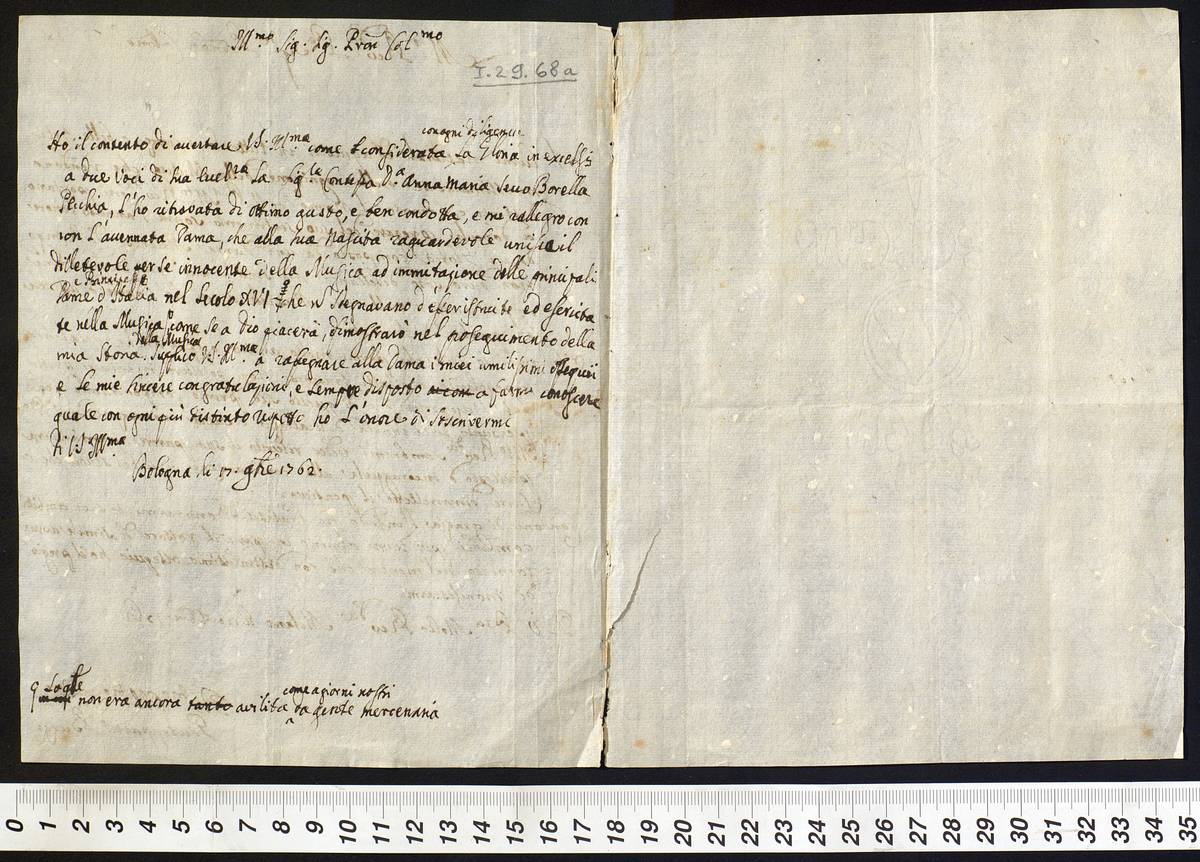 Ill.mo Sig. Sig. Pron Col.mo
I.29.68a
con ogni diligenza
Ho il contento di avertare V.S. Ill.ma come considerata la Gloria in excelsis
a due Voci di Sua Contessa D.a Anna Maria Seuo Borella
Pecchia, l'ho ritrovata di ottimo gusto, e ben condotta, e mi rallegro con
con l'avennata Dama, che alla sua Nascita raguardevole unisce il
dilletevole per se innocente della Musica ad immitazione delle principali
e Principesse
Dame d'Italia nel Secolo XVI che n' Sdegnavano d'esser istruite ed esercita
te nella Musica, come se a Dio piacerà, dimostrarò nel proseguimento della
della Musica
mia Storia. Supplico V.S. Ill.ma a rassegnare alla Dama i miei umilissimi ossequi
e le mie sincere congratulazioni, e sempre disposto a farmi conoscere
quale con ogni più distinto rispetto ho l'onore di sescrivermi
Di V.S. Ill.ma
Bologna li 17. 9bre 1762.
La qle
come a giorni nostri
non era ancora tanto avilita da gente mercenaria
0 1 2 3 4 5 6 7 8 9 10 11 12 13 14 15 16 17 18 19 20 21 22 23 24 25 26 27 28 29 30 31 32 33 34 35